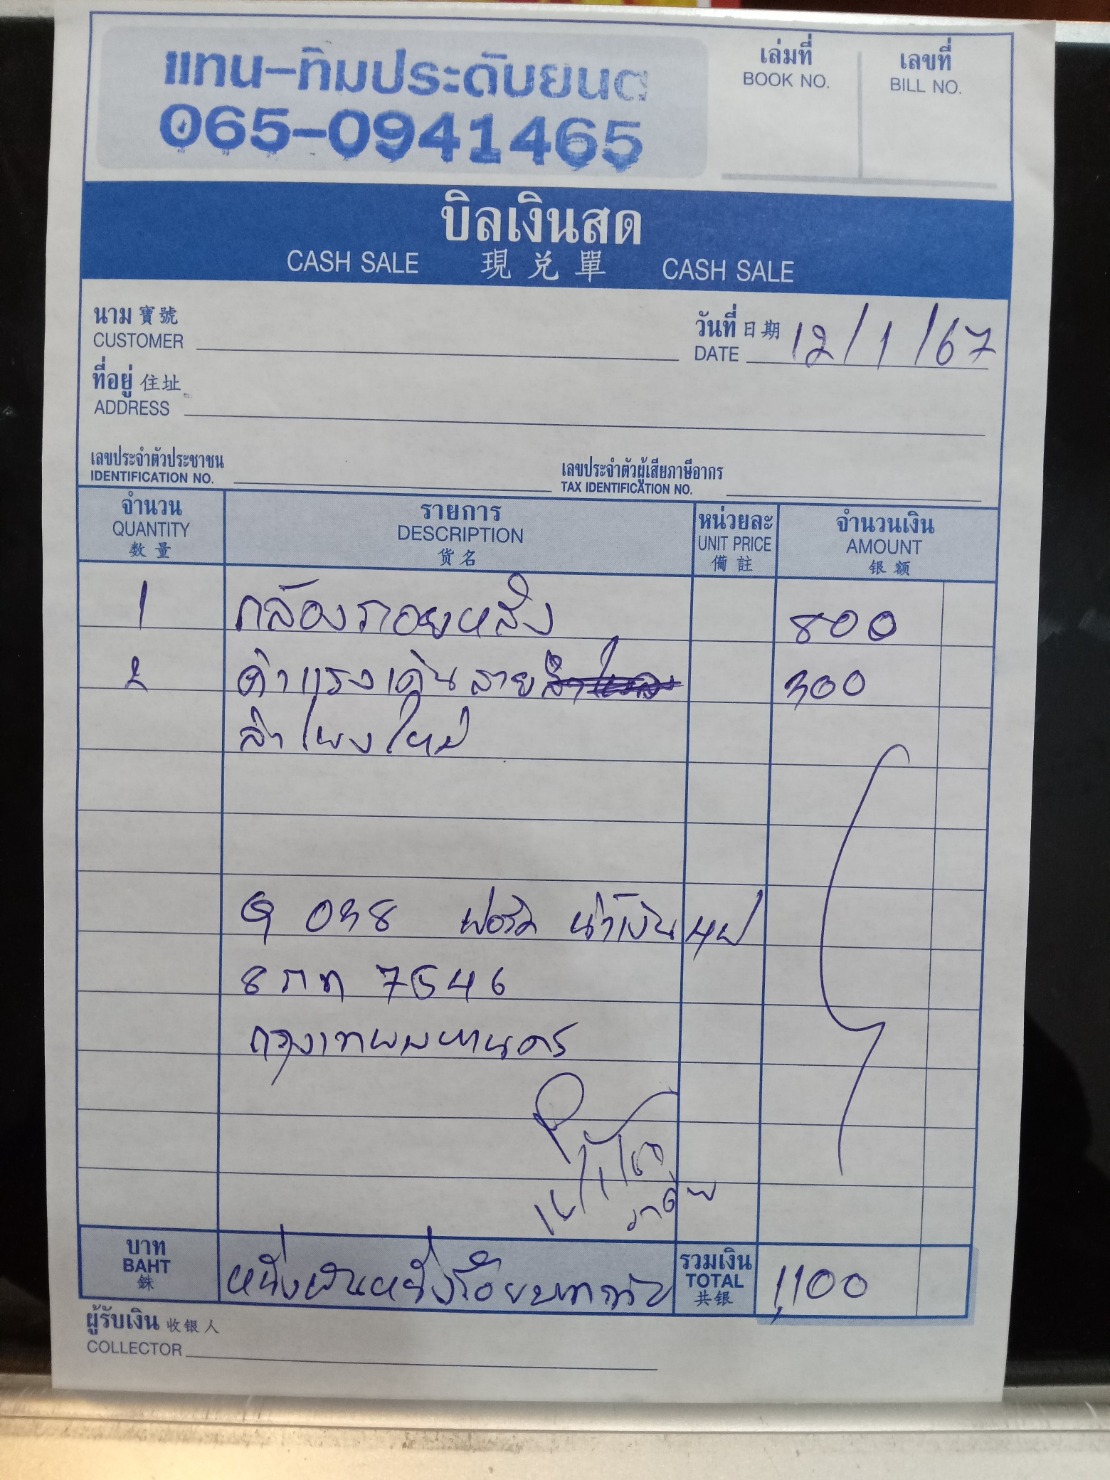 แทน-ทิมประดับยนต์
065-0941465
เล่มที่
BOOK NO.
เลขที่
BILL NO.
บิลเงินสด
CASH SALE 現兑單 CASH SALE
นาม 寶號
CUSTOMER
วันที่ 日期 12/1/67
DATE
ที่อยู่ 住址
ADDRESS
เลขประจำตัวประชาชน
IDENTIFICATION NO.
เลขประจำตัวผู้เสียภาษีอากร
TAX IDENTIFICATION NO.
จำนวน รายการ หน่วยละ จำนวนเงิน
QUANTITY DESCRIPTION UNIT PRICE AMOUNT
数量 货名 備註 银额
1 กล้องถอยหลัง 800
2 ค่าแรงเดินสาย 300
ลำโพงใหม่
038 ฟอร์ด น้ำเงิน
8กต 7546
กรุงเทพมหานคร
บาท หนึ่งพันหนึ่งร้อยบาทถ้วน รวมเงิน 1,100
BAHT TOTAL
銖 共银
ผู้รับเงิน 收银人
COLLECTOR